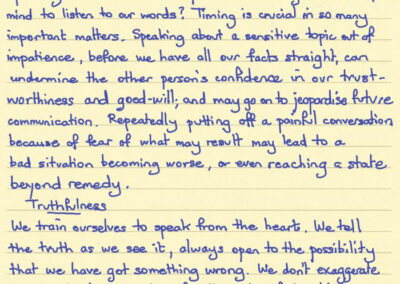 mind to listen to our words? Timing is crucial in so many
important matters. Speaking about a sensitive topic out of
impatience, before we have all our facts straight, can
undermine the other person's confidence in our trust-
worthiness and good-will, and may go on to jeopardise future
communication. Repeatedly putting off a painful conversation
because of fear of what may result may lead to a
bad situation becoming worse, or even reaching a state
beyond remedy.
Truthfulness
We train ourselves to speak from the heart. We tell
the truth as we see it, always open to the possibility
that we have got something wrong. We don't exaggerate